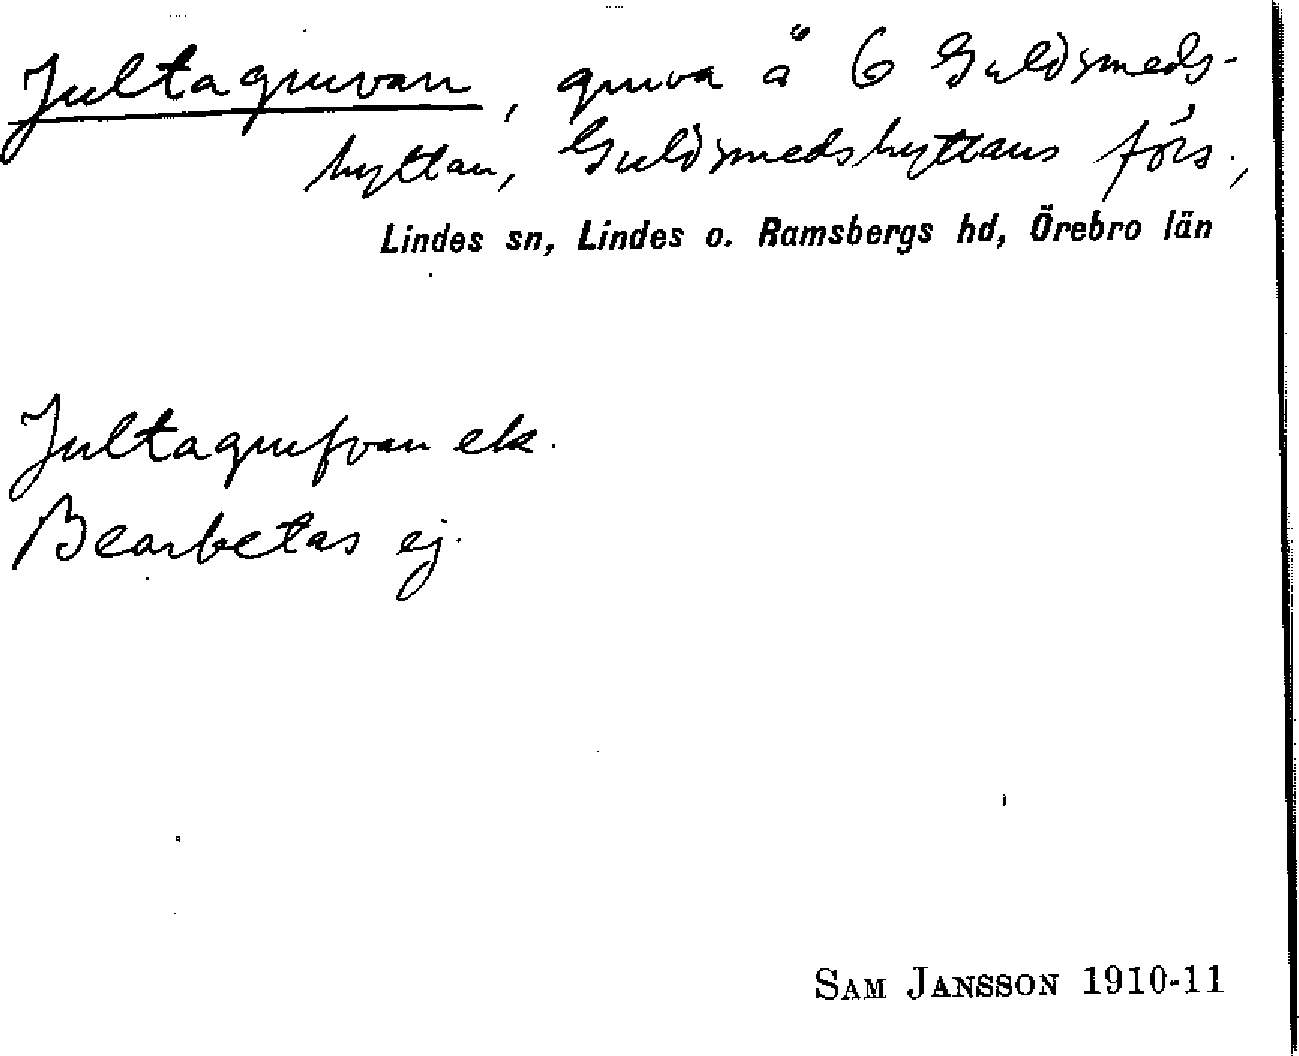 Jultagruvan, gruva å 6 Guldsmeds-
hyttan, Guldsmedshyttans förs.,
Lindes sn, Lindes o. Ramsbergs hd, Örebro län
Jultagrufvan ek.
Bearbetas ej.
SAM JANSSON 1910-11